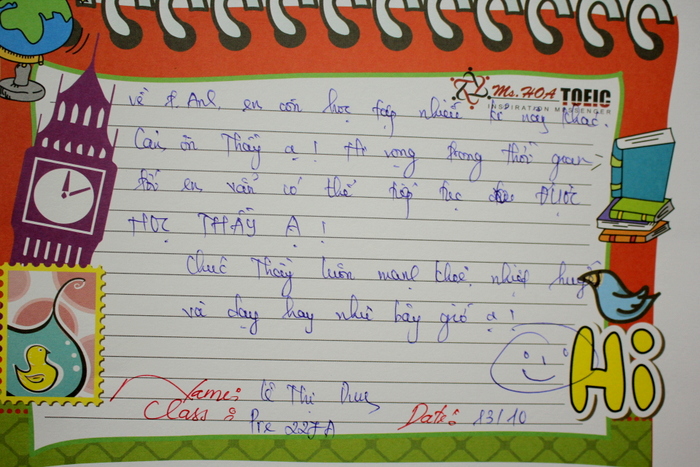 Ms. HOA TOEIC
INSPIRATION MESSENGER
về T. Anh, em còn học tập nhiều kĩ năng khác.
Cảm ơn Thầy ạ! Hi vọng trong thời gian
tới em vẫn có thể tiếp tục ĐƯỢC
HỌC THẦY Ạ!
Chúc Thầy luôn mạnh khoẻ, nhiệt huyết
và dạy hay như bây giờ ạ!
Hi
Name: Lê Thị
Class: Pre 227A
Date: 13/10